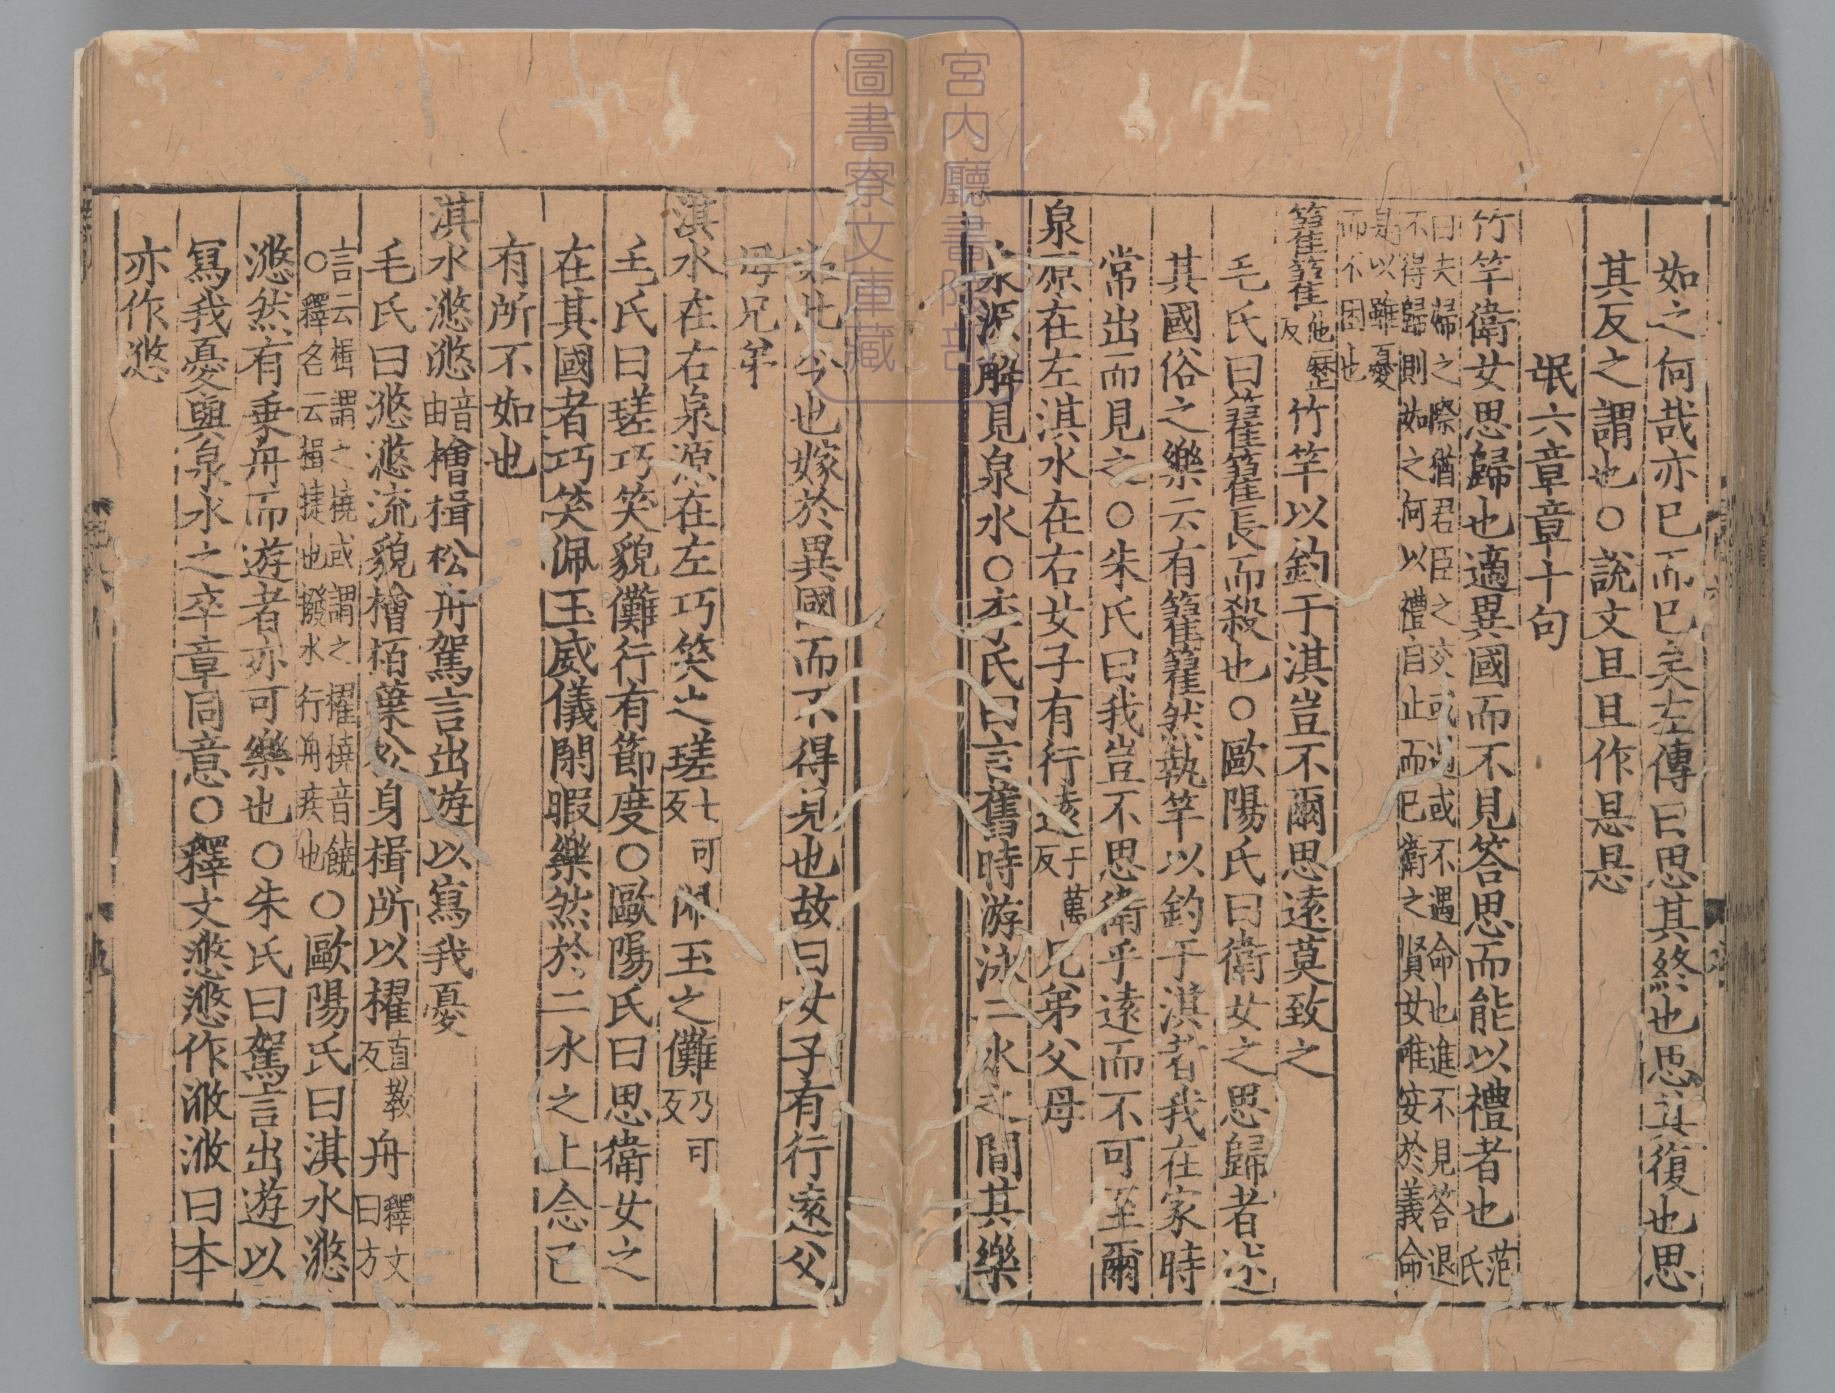 如之何哉亦已而已矣左傳曰思其終也思其復也思
其反之謂也○說文旦旦作悬悬
氓六章章十句
竹竿衛女思歸也適異國而不見答思而能以禮者也范氏
曰夫婦之際猶君臣之交或遇或不遇命也進不見答退
不得歸則如之何以禮自止而已衛之賢女唯安於義命
是以雖憂
而不困也
籊籊他歷反竹竿以釣于淇豈不爾思遠莫致之
毛氏曰籊籊長而殺也○歐陽氏曰衛女之思歸者述
其國俗之樂云有籊籊然執竿以釣于淇者我在家時
常出而見之○朱氏曰我豈不思衛乎遠而不可至爾
泉原在左淇水在右女子有行遠于萬反兄弟父母
泉源解見泉水○李氏曰言舊時游泳二水之間其樂
宮内廳書陵部
圖書寮文庫藏
如此今也嫁於異國而不得見也故曰女子有行遠父
母兄弟
淇水在右泉源在左巧笑之瑳七可反佩玉之儺乃可反
毛氏曰瑳巧笑貌儺行有節度○歐陽氏曰思衛女之
在其國者巧笑佩玉威儀閑暇樂然於二水之上念己
有所不如也
淇水滺滺音由檜楫松舟駕言出遊以寫我憂
毛氏曰滺滺流貌檜栢葉松身楫所以櫂直教反舟釋文曰方
言云楫謂之橈或謂之櫂橈音饒
○釋名云楫捷也撥水行舟疾也○歐陽氏曰淇水滺
滺然有乗舟而遊者亦可樂也○朱氏曰駕言出遊以
寫我憂與泉水之卒章同意○釋文滺滺作浟浟曰本
亦作滺